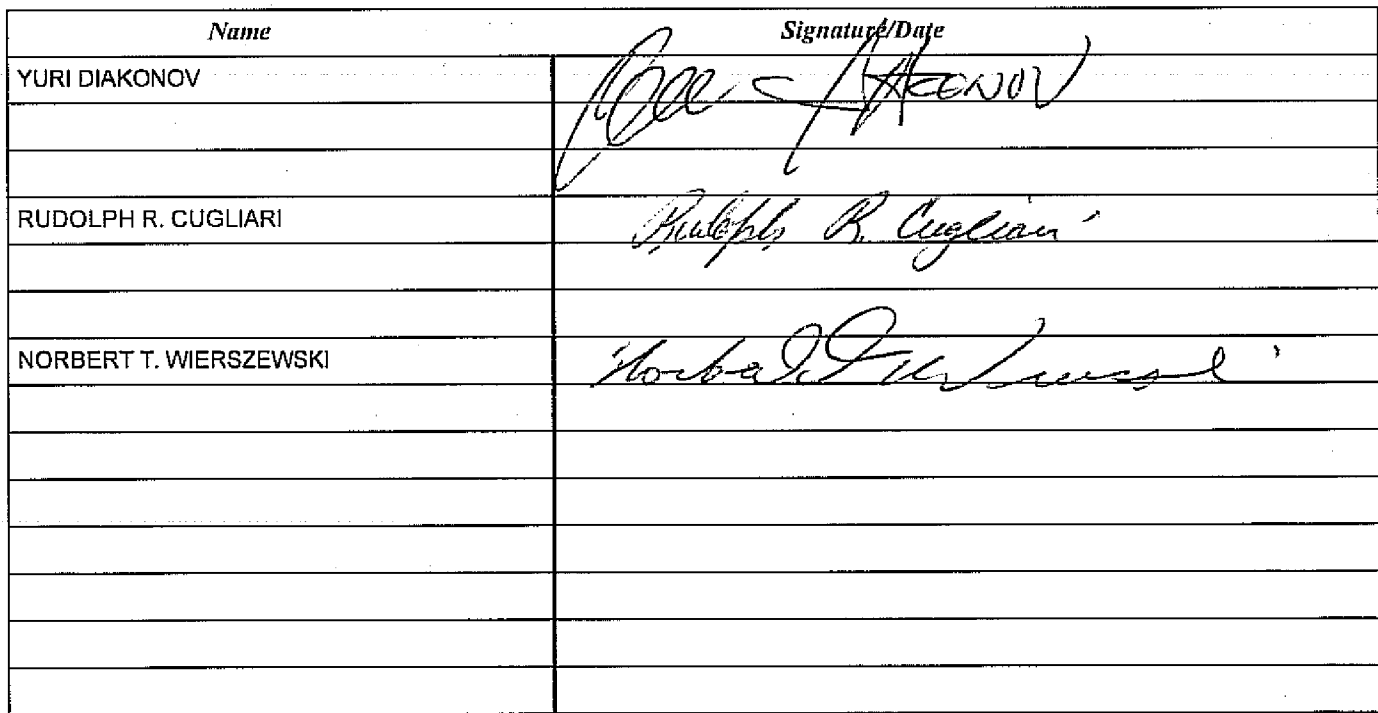 Name Signature/Date
YURI DIAKONOV
RUDOLPH R. CUGLIARI Rudolph R. Cugliari
NORBERT T. WIERSZEWSKI Norbert T